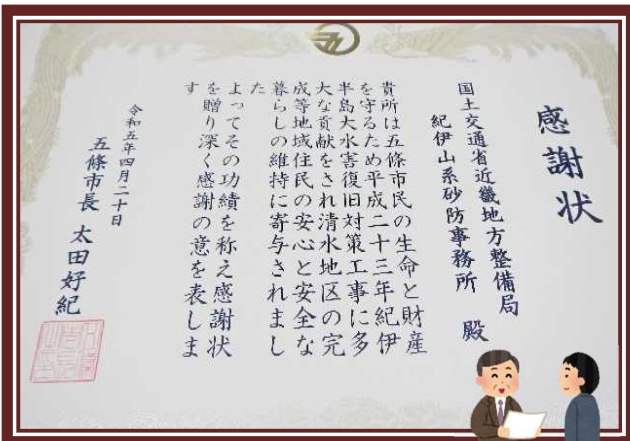 感謝状
国土交通省近畿地方整備局
紀伊山系砂防事務所 殿
貴所は五條市民の生命と財産
を守るため平成二十三年紀伊
半島大水害復旧対策工事に多
大な貢献をされ清水地区の完
成等地域住民の安心と安全な
暮らしの維持に寄与されまし
た
よってその功績を称え感謝状
を贈り深く感謝の意を表しま
す
令和五年四月二十日
五條市長 太田好紀